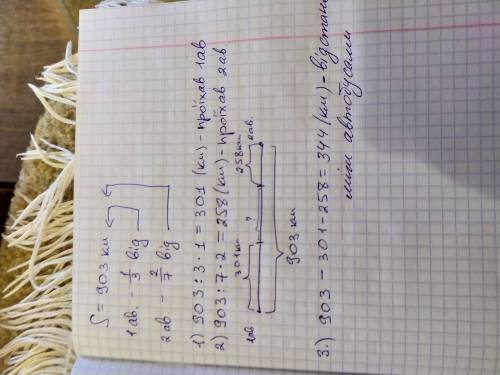 S = 903 км
1 ав. - 1/3 від
2 ав - 2/7 від
1) 903 : 3 · 1 = 301 (км) - проїхав 1ав
2) 903 : 7 · 2 = 258 (км) - проїхав 2ав
301км ? 258км
1ав 2ав.
903 км
3.) 903 - 301 - 258 = 344 (км) - відстань
між автобусами